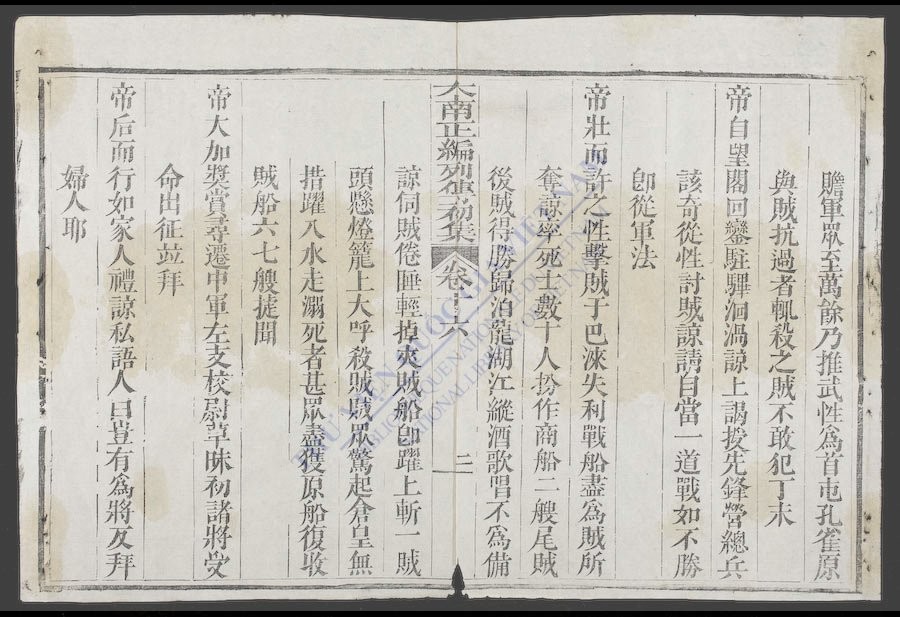 贍軍眾至萬餘乃推武性爲首屯孔雀原
與賊抗過者輒殺之賊不敢犯丁未
帝自望閣回鑾駐驆洄渦諒上謁授先鋒營總兵
該奇從性討賊諒請自當一道戰如不勝
卽從軍法
帝壯而許之性擊賊于巴淶失利戰船盡爲賊所
奪諒率死士數十人扮作商船二艘尾賊
後賊得勝歸泊龍湖江縱酒歌唱不爲備
大南正編列傳初集 卷十六 二
諒伺賊倦睡輕掉夾賊船卽躍上斬一賊
頭懸燈籠上大呼殺賊賊眾驚起倉皇無
措躍入水走溺死者甚眾盡獲原船復收
賊船六七艘㨗聞
帝大加獎賞尋遷中軍左支校尉草昧初諸將受
命出征並拜
帝后而行如家人禮諒私語人曰豈有爲將反拜
婦人耶
THƯ VIỆN QUỐC GIA VIỆT NAM
BIBLIOTHEQUE NATIONALE DU VIETNAM
NATIONAL LIBRARY OF VIETNAM